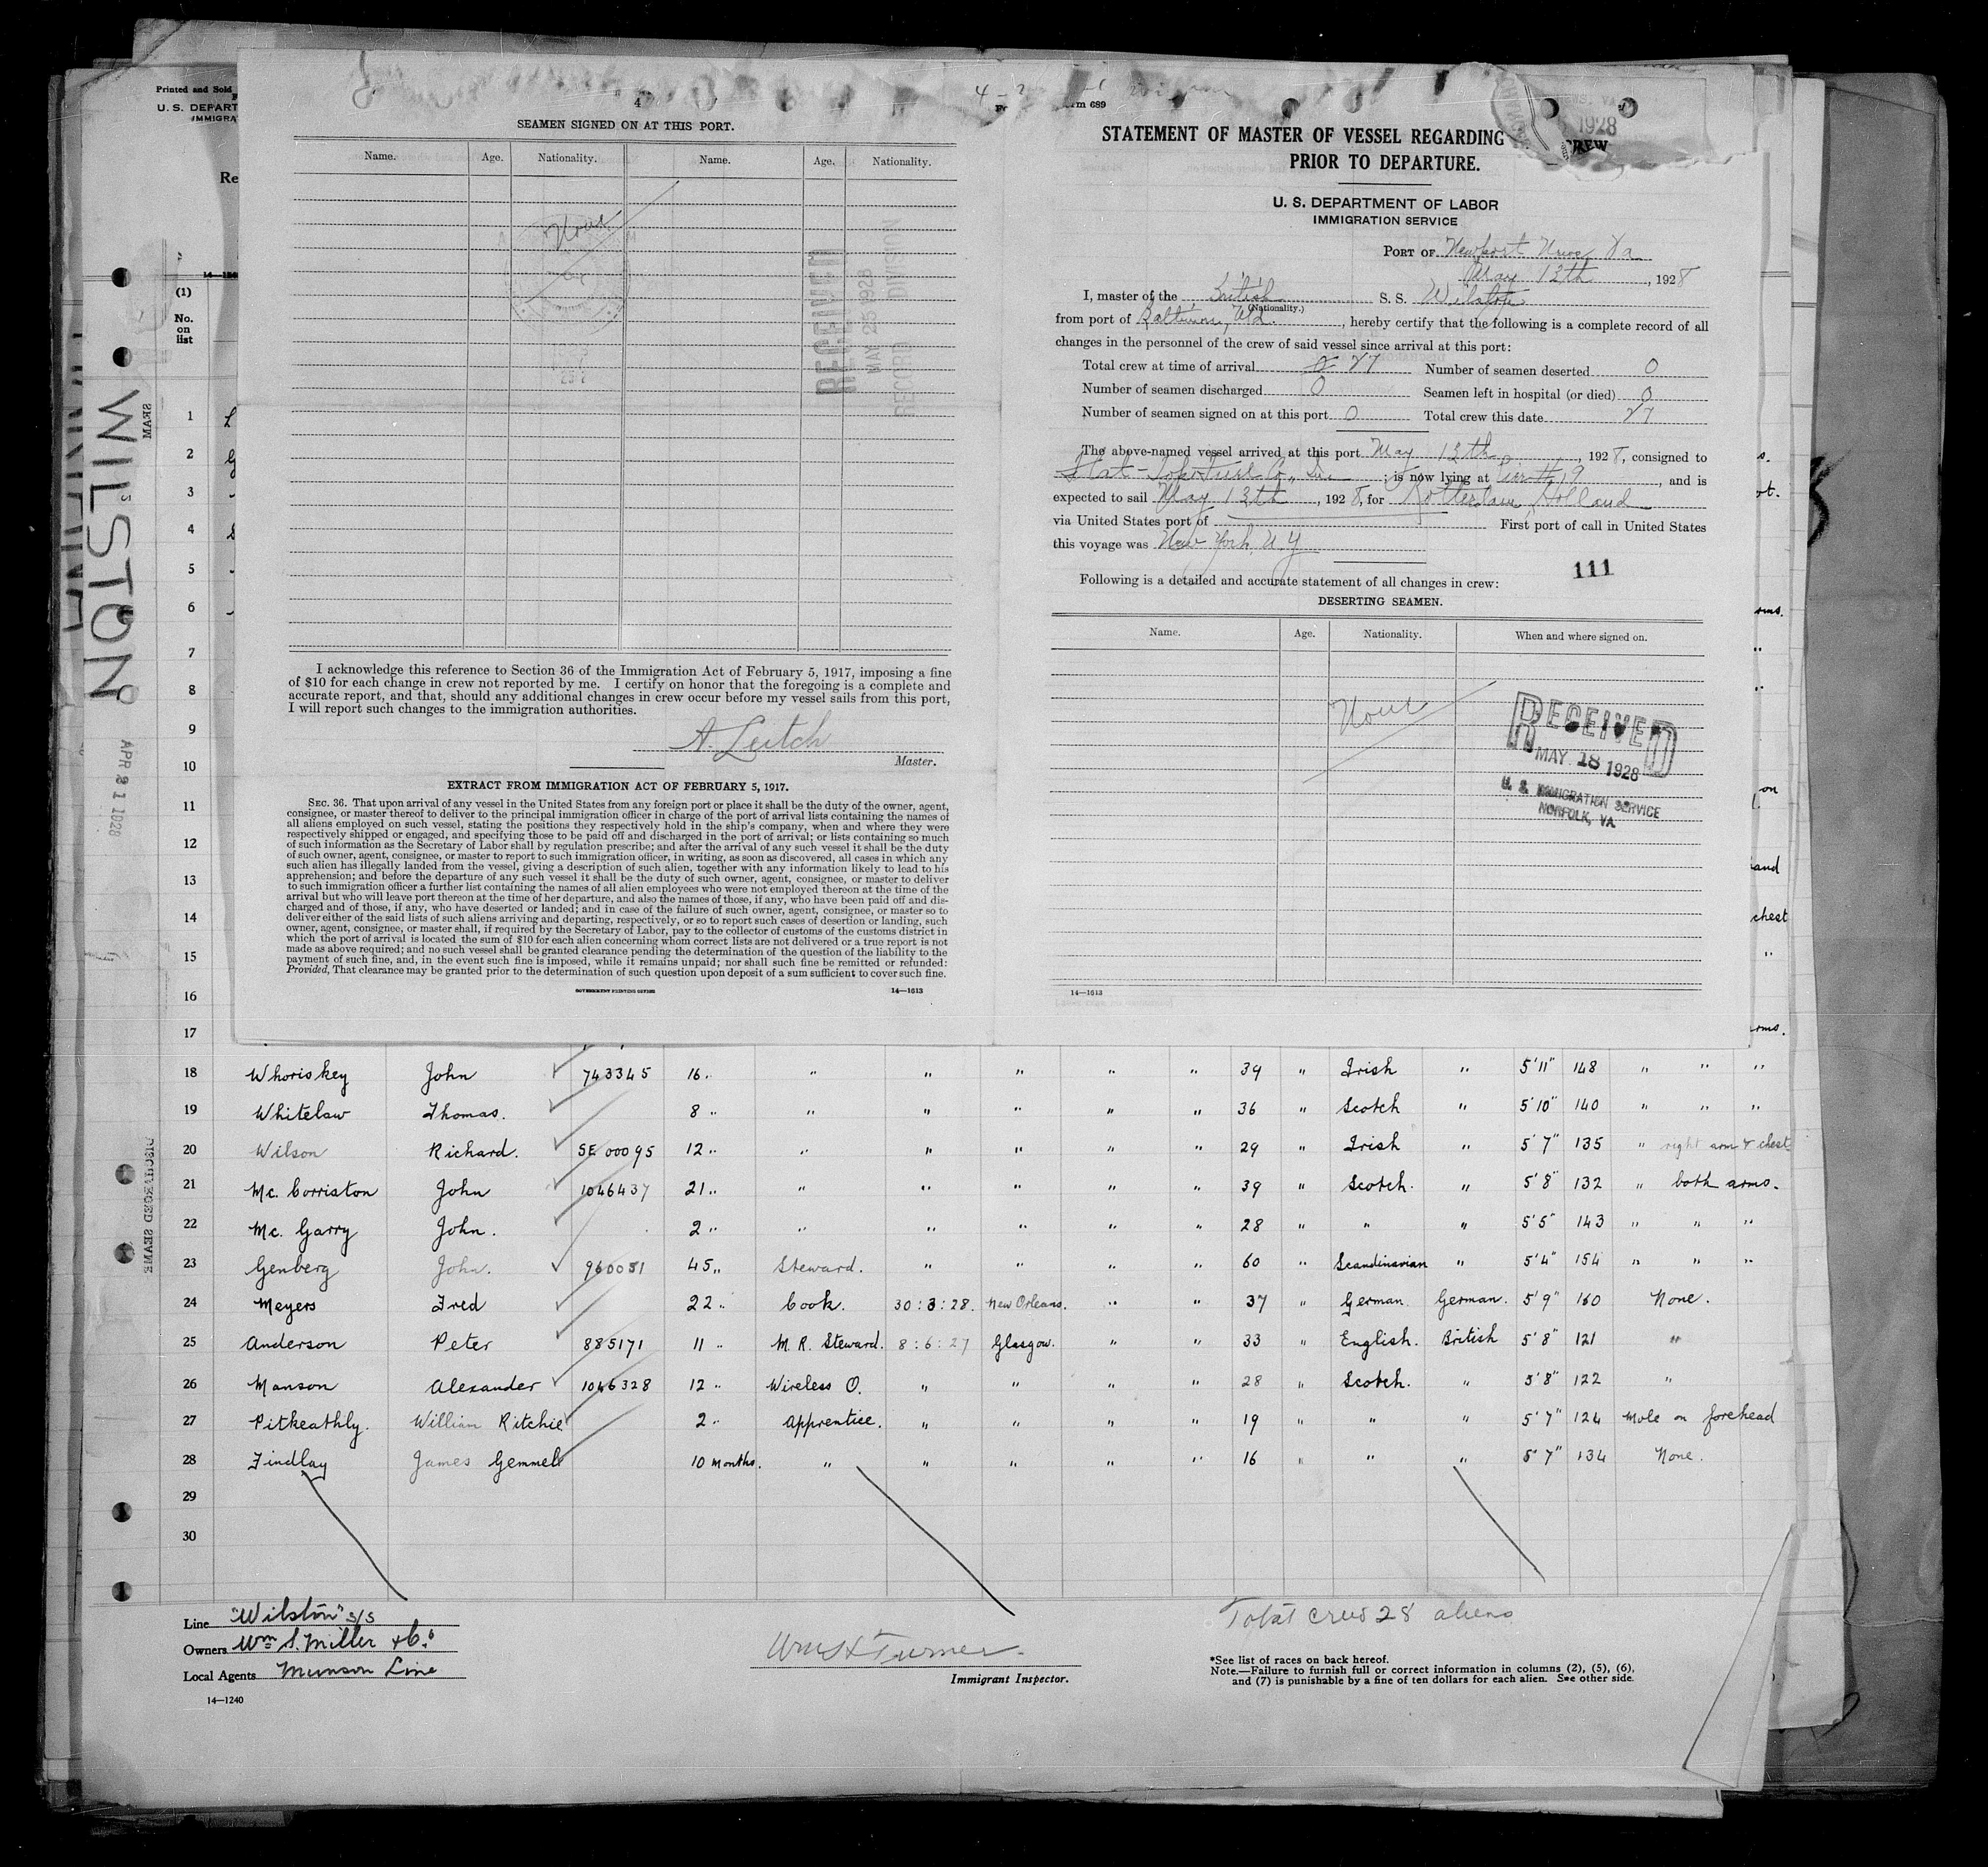 Printed and Sold
U. S. DEPART
IMMIGRA
Re
(1)
No.
on
list
WILSTON
APR 21 1928
4
SEAMEN SIGNED ON AT THIS PORT.
Name. Age. Nationality. Name. Age. Nationality.
None
RECEIVED
MAY 25 1928
RECORD DIVISION
I acknowledge this reference to Section 36 of the Immigration Act of February 5, 1917, imposing a fine
of $10 for each change in crew not reported by me. I certify on honor that the foregoing is a complete and
accurate report, and that, should any additional changes in crew occur before my vessel sails from this port,
I will report such changes to the immigration authorities.
A. Leitch
Master.
EXTRACT FROM IMMIGRATION ACT OF FEBRUARY 5, 1917.
SEC. 36. That upon arrival of any vessel in the United States from any foreign port or place it shall be the duty of the owner, agent,
consignee, or master thereof to deliver to the principal immigration officer in charge of the port of arrival lists containing the names of
all aliens employed on such vessel, stating the positions they respectively hold in the ship's company, when and where they were
respectively shipped or engaged, and specifying those to be paid off and discharged in the port of arrival; or lists containing so much
of such information as the Secretary of Labor shall by regulation prescribe; and after the arrival of any such vessel it shall be the duty
of such owner, agent, consignee, or master to report to such immigration officer, in writing, as soon as discovered, all cases in which any
such alien has illegally landed from the vessel, giving a description of such alien, together with any information likely to lead to his
apprehension; and before the departure of any such vessel it shall be the duty of such owner, agent, consignee, or master to deliver
to such immigration officer a further list containing the names of all alien employees who were not employed thereon at the time of the
arrival but who will leave port thereon at the time of her departure, and also the names of those, if any, who have been paid off and dis-
charged and of those, if any, who have deserted or landed; and in case of the failure of such owner, agent, consignee, or master so to
deliver either of the said lists of such aliens arriving and departing, respectively, or so to report such cases of desertion or landing, such
owner, agent, consignee, or master shall, if required by the Secretary of Labor, pay to the collector of customs of the customs district in
which the port of arrival is located the sum of $10 for each alien concerning whom correct lists are not delivered or a true report is not
made as above required; and no such vessel shall be granted clearance pending the determination of the question of the liability to the
payment of such fine, and, in the event such fine is imposed, while it remains unpaid; nor shall such fine be remitted or refunded:
Provided, That clearance may be granted prior to the determination of such question upon deposit of a sum sufficient to cover such fine.
GOVERNMENT PRINTING OFFICE 14—1613
rm 689
1928
STATEMENT OF MASTER OF VESSEL REGARDING CREW
PRIOR TO DEPARTURE.
U. S. DEPARTMENT OF LABOR
IMMIGRATION SERVICE
PORT OF Newport News Va
May 13th, 1928
I, master of the British S. S. Wilston
(Nationality.)
from port of Baltimore, Md., hereby certify that the following is a complete record of all
changes in the personnel of the crew of said vessel since arrival at this port:
Total crew at time of arrival 27 Number of seamen deserted 0
Number of seamen discharged 0 Seamen left in hospital (or died) 0
Number of seamen signed on at this port 0 Total crew this date 27
The above-named vessel arrived at this port May 13th, 1928, consigned to
Fuel Co., Inc; is now lying at Pier # 9, and is
expected to sail May 13th, 1928, for Rotterdam, Holland
via United States port of First port of call in United States
this voyage was New York, N.Y
111
Following is a detailed and accurate statement of all changes in crew:
DESERTING SEAMEN.
Name. Age. Nationality. When and where signed on.
None
RECEIVED
MAY 18 1928
U. S. IMMIGRATION SERVICE
NORFOLK, VA.
14—1613
1
2
3
4
5
6
7
8
9
10
11
12
13
14
15
16
17
18 Whoriskey John 743345 16 " " " " " " 39 " Irish " 5'11" 148 " " "
19 Whitelaw Thomas. 8 " " " " " " 36 " Scotch " 5'10" 140 " " "
20 Wilson Richard. SE 00095 12 " " " " " " 29 " Irish " 5'7" 135 " right arm & chest
21 Mc. Corriston John 1046437 21 " " " " " " 39 " Scotch. " 5'8" 132 " both arms.
22 Mc. Garry John. 2 " " " " " " 28 " " " 5'5" 143 " " "
23 Genberg John. 960081 45 " Steward. " " " " 60 " Scandinavian " 5'4" 154 " " "
24 Meyers Fred 22 " Cook. 30:3:28. New Orleans. " " 37 " German. German. 5'9" 160 None.
25 Anderson Peter 885171 11 " M. R. Steward. 8:6:27 Glasgow. " " 33 " English. British 5'8" 121 "
26 Manson Alexander 1046328 12 " Wireless O. " " " " 28 " Scotch. " 5'8" 122 "
27 Pitkeathly. William Ritchie 2 " Apprentice. " " " " 19 " " " 5'7" 124 Mole on forehead
28 Findlay James Gemmell 10 months. " " " " " 16 " " " 5'7" 134 None.
29
30
Line "Wilston" S/S
Owners Wm S. Miller & Co.
Local Agents Munson Line
14—1240
Wm H Turner
Immigrant Inspector.
Total crew 28 aliens
*See list of races on back hereof.
Note.—Failure to furnish full or correct information in columns (2), (5), (6),
and (7) is punishable by a fine of ten dollars for each alien. See other side.